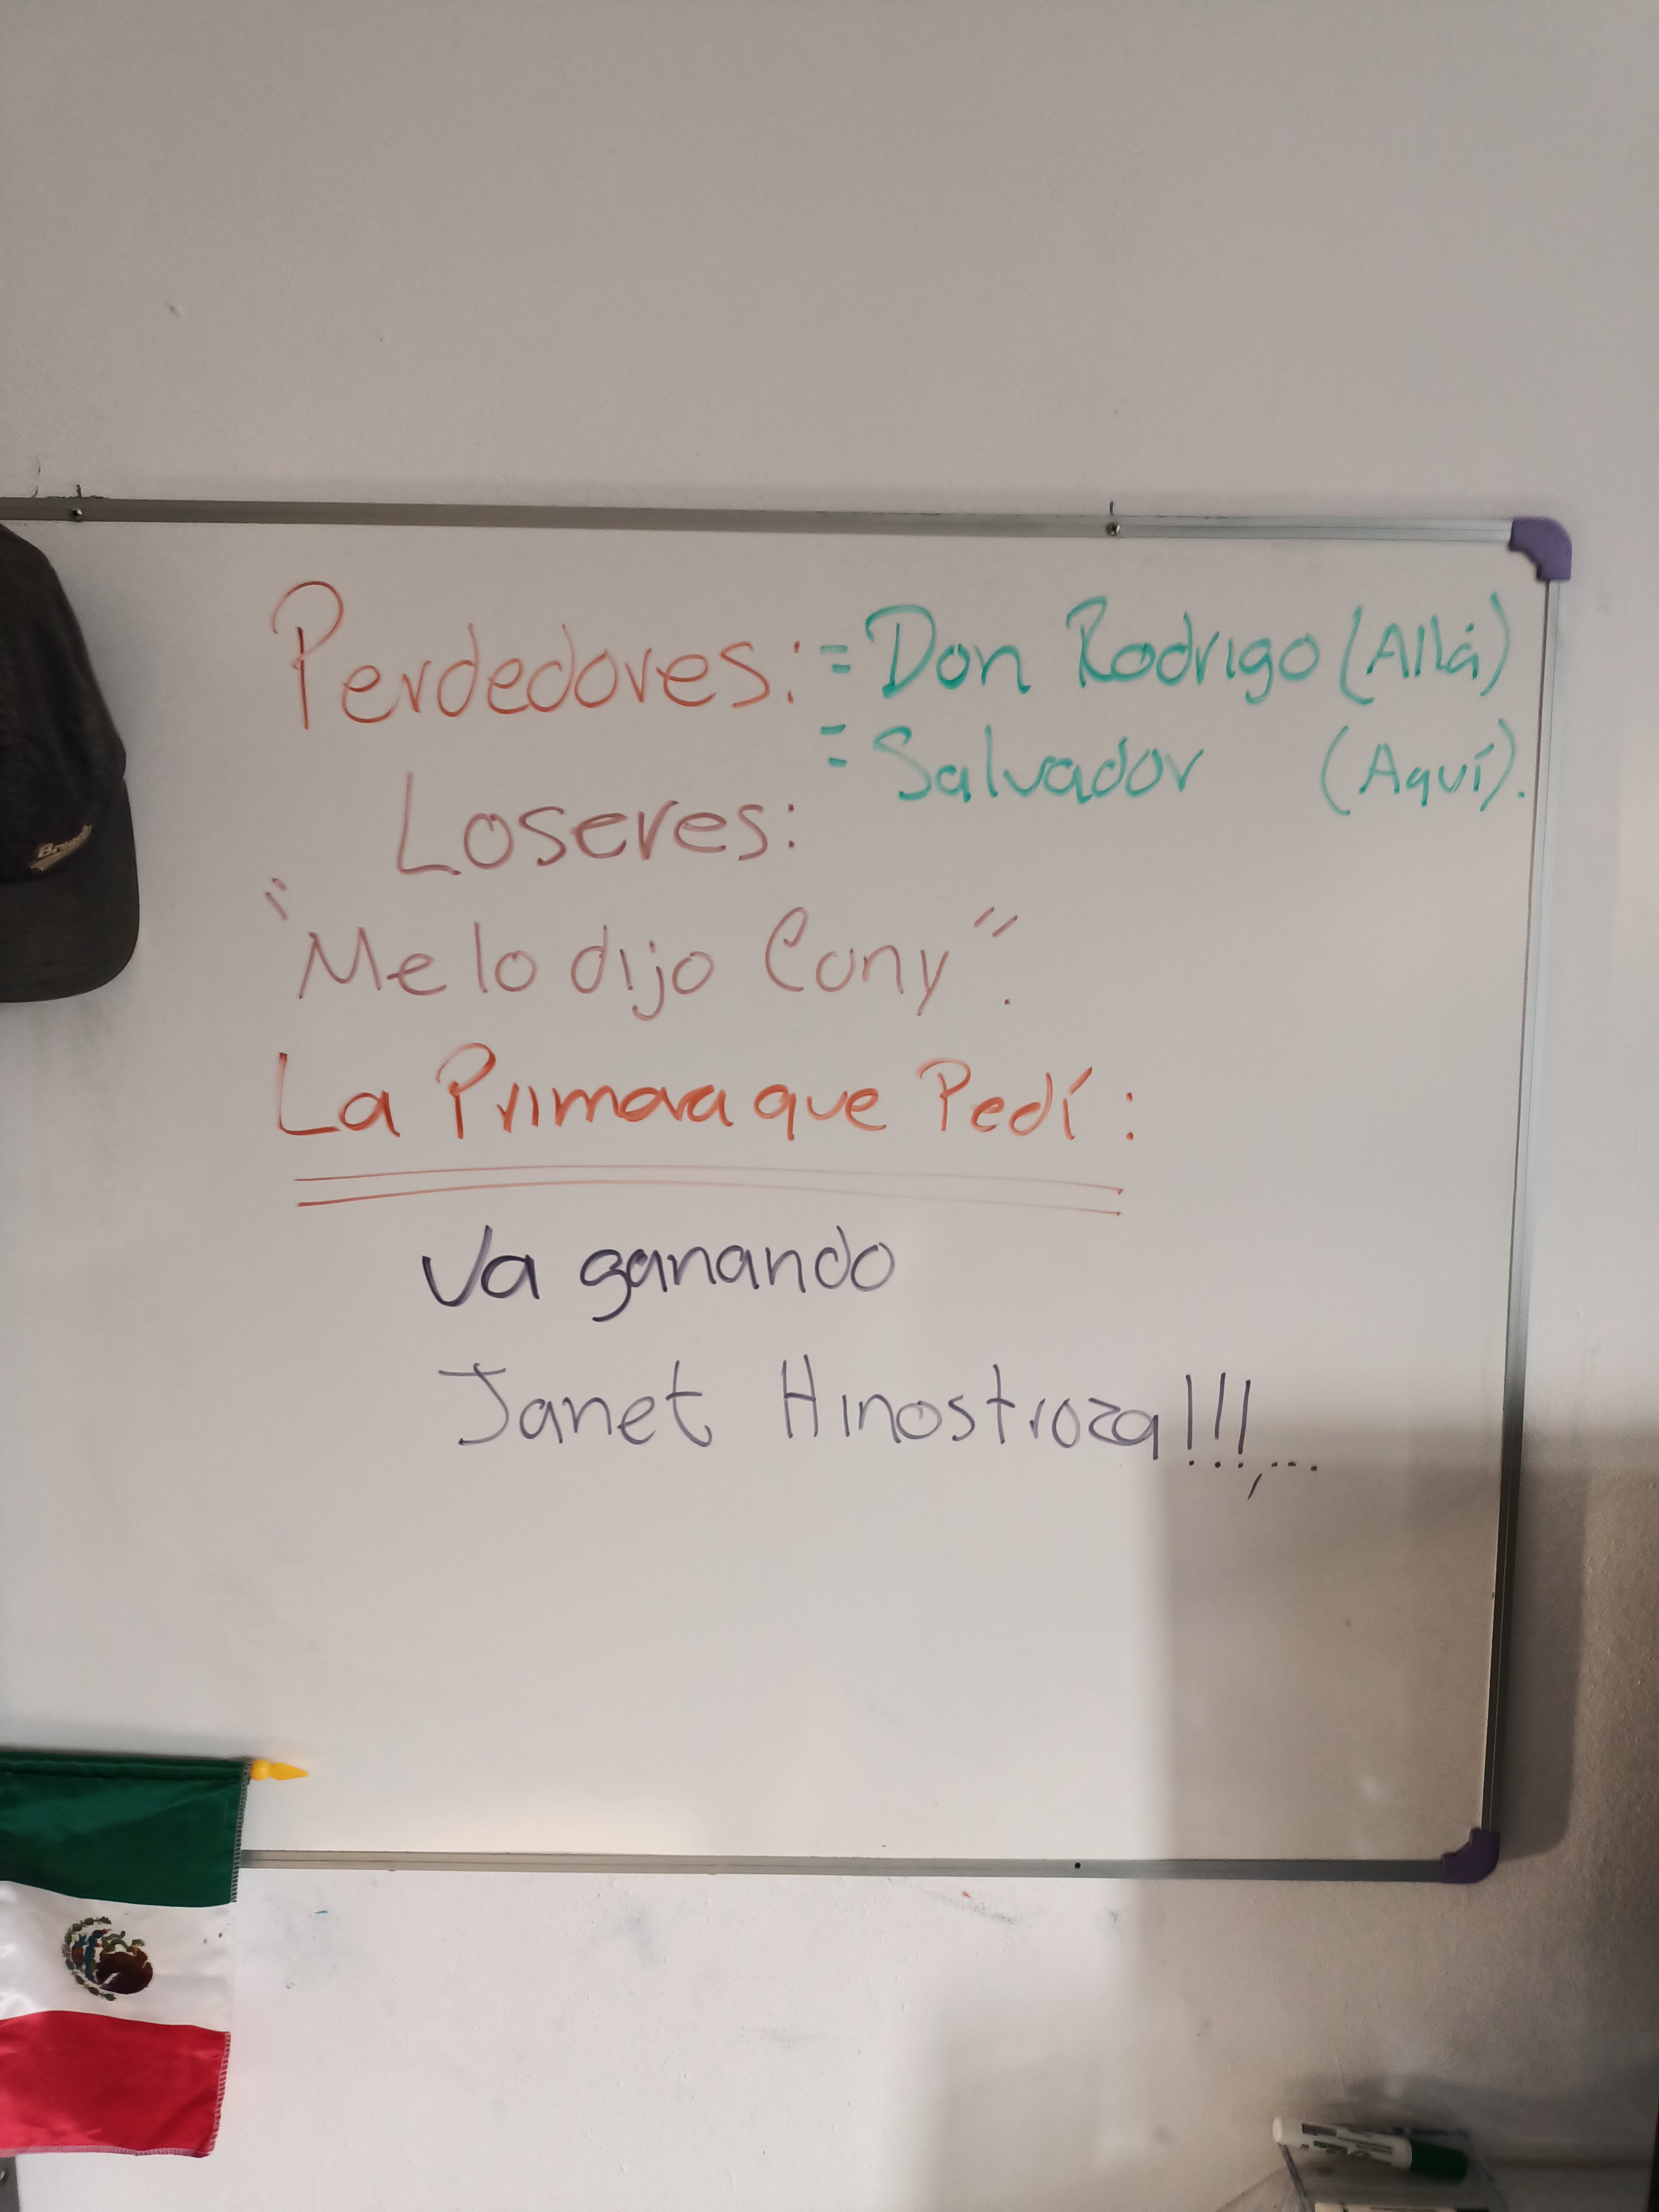 Perdedores: = Don Rodrigo (Allá)
= Salvador (Aquí).
Loseres:
"Me lo dijo Cony".
La Primera que Pedí:
Va ganando
Janet Hinostroza!!!,...